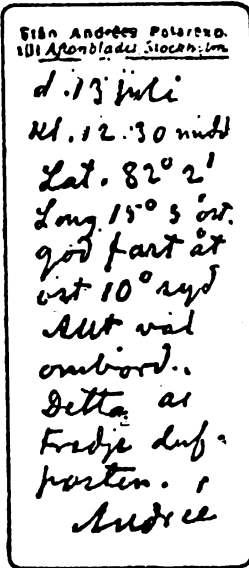 Från Andrées Polarexp.
till Aftonbladet, Stockholm
d. 13 juli
kl. 12.30 midd
Lat. 82° 2'
Long. 15° 5' öst.
god fart åt
öst 10° syd
Allt väl
ombord.
Detta är
tredje duf-
posten.
Andrée